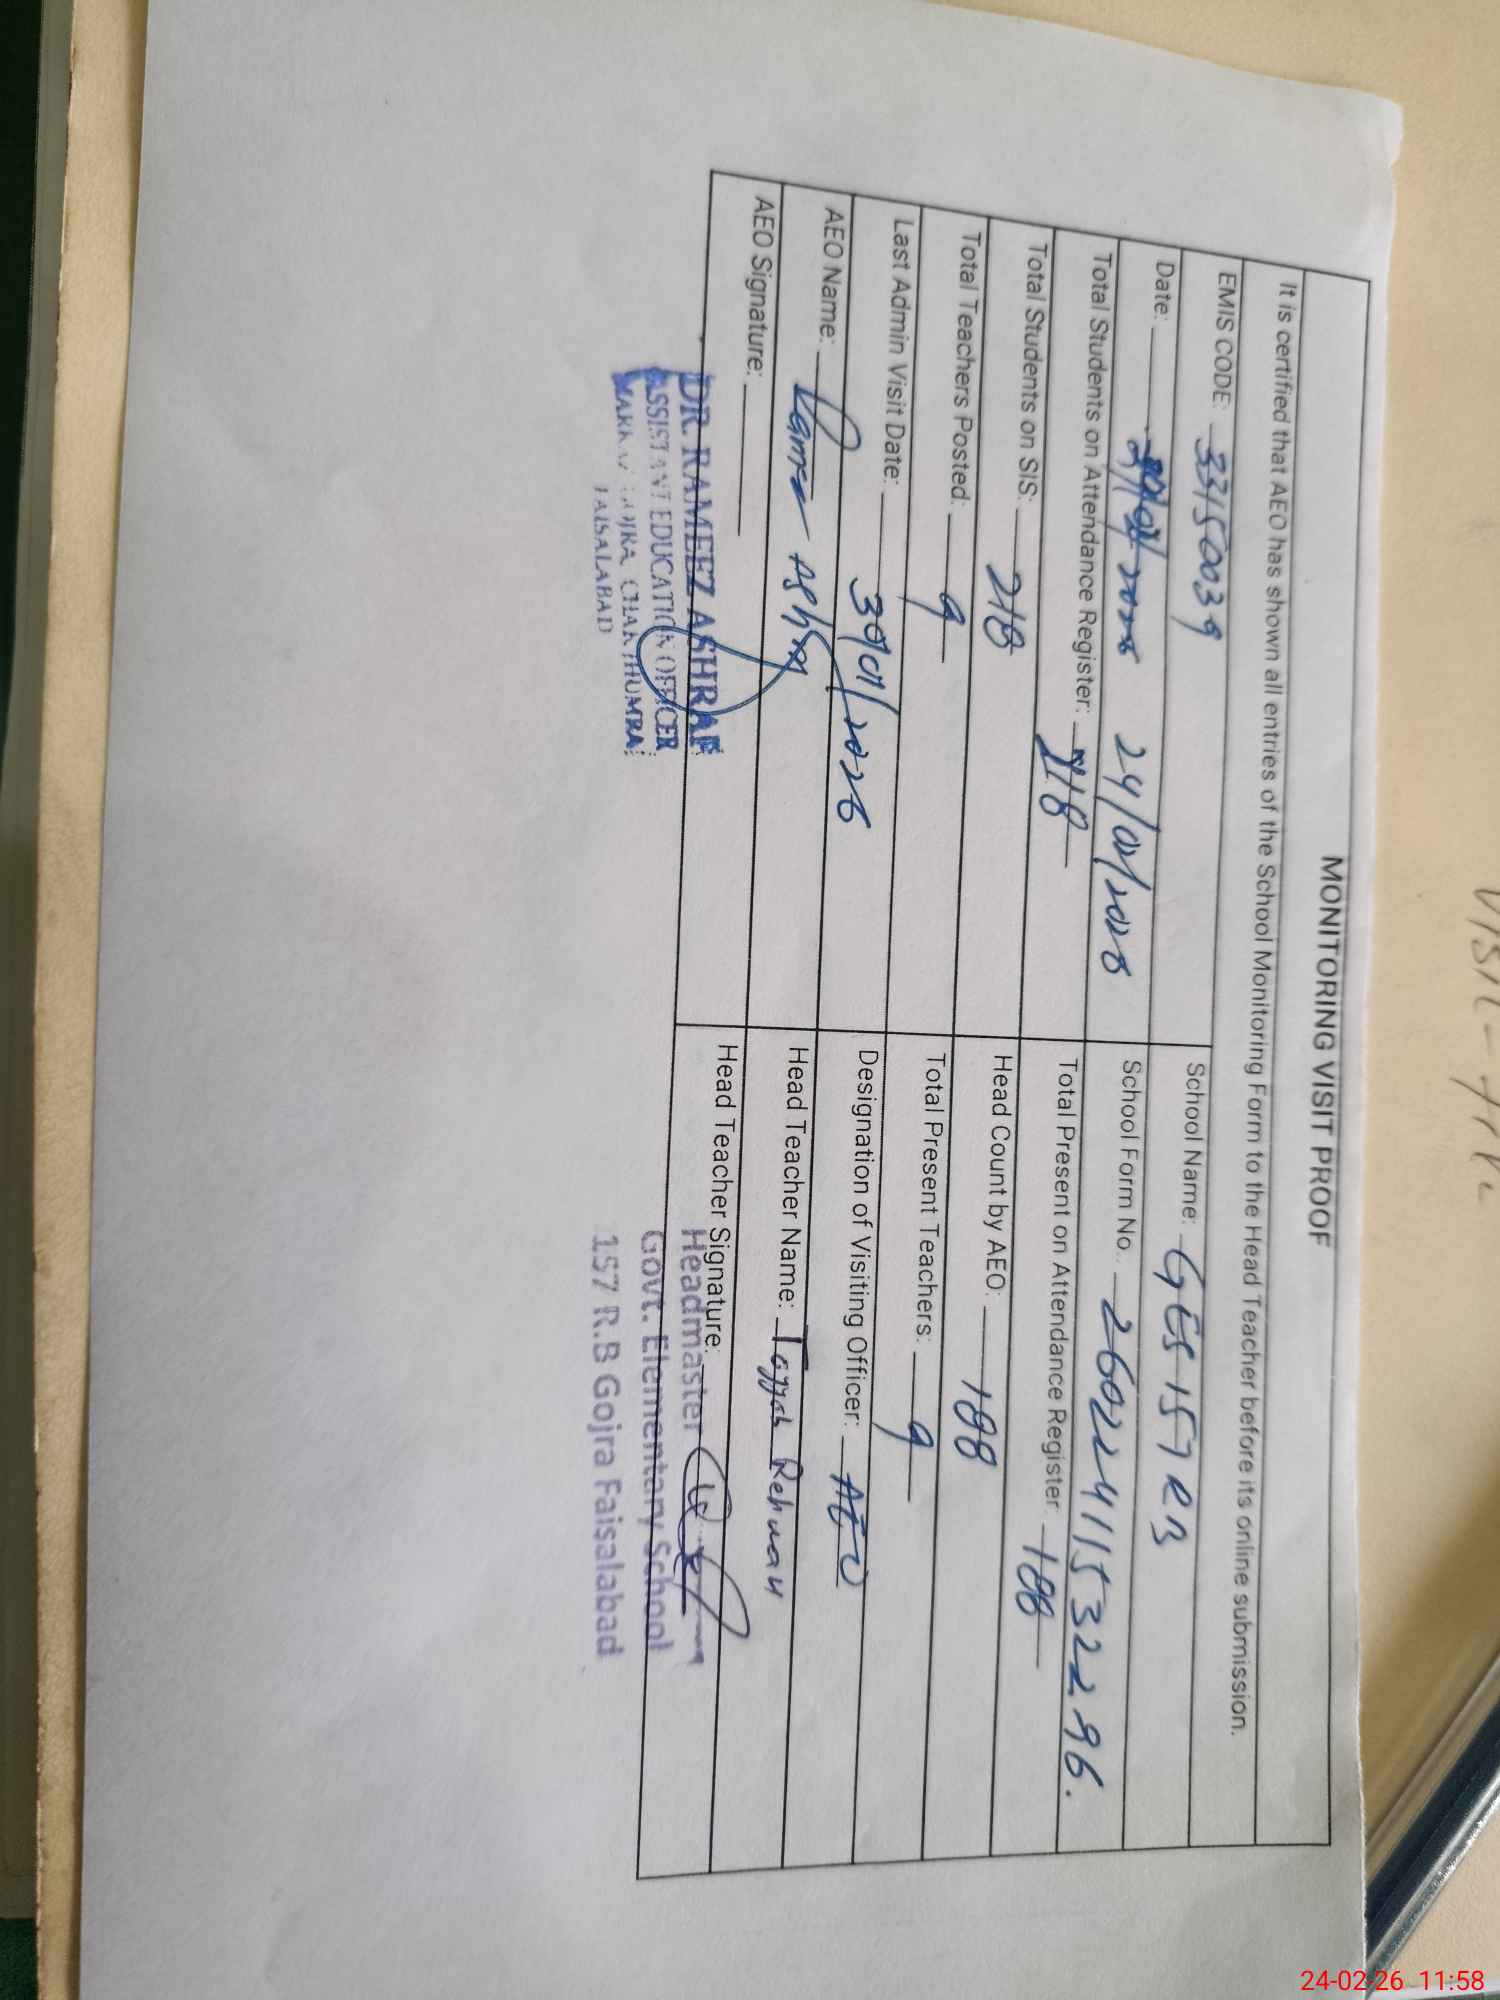 MONITORING VISIT PROOF
It is certified that AEO has shown all entries of the School Monitoring Form to the Head Teacher before its online submission.
EMIS CODE: 33150039 School Name: GES 157 RB
Date: 24/02/2026 School Form No.. 2602241153 22 96.
Total Students on Attendance Register: 218 Total Present on Attendance Register: 188
Total Students on SIS: 218 Head Count by AEO: 188
Total Teachers Posted: 9 Total Present Teachers: 9
Last Admin Visit Date: 30/01/2026 Designation of Visiting Officer: AEO
AEO Name: Rameez Ashraf Head Teacher Name: Tayyab Rehman
AEO Signature: Head Teacher Signature:
DR. RAMEEZ ASHRAF
ASSISTANT EDUCATION OFFICER
CHAK JHUMRA
FAISALABAD
Headmaster
Govt. Elementary School
157 R.B Gojra Faisalabad
24-02-26 11:58